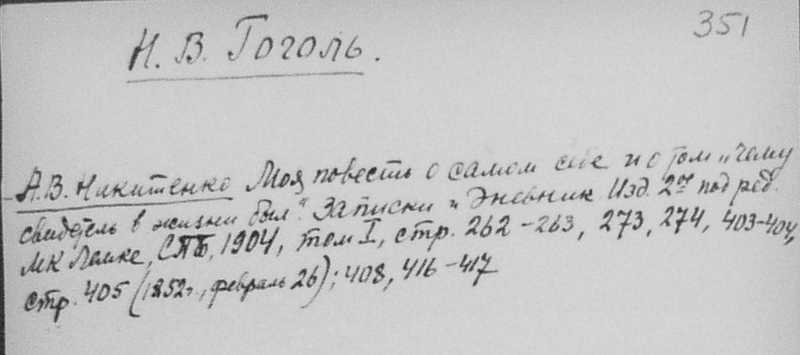 351
Н. В. Гоголь.
А.В. Никитенко Моя повесть о самом себе и о том „чему
свидетель в жизни был“. Записки и Дневник Изд. 2ое под ред.
МК Лемке, СПБ, 1904, том I, стр. 262-263, 273, 274, 403-404,
стр. 405 (1852г., февраль 26); 408, 416-417